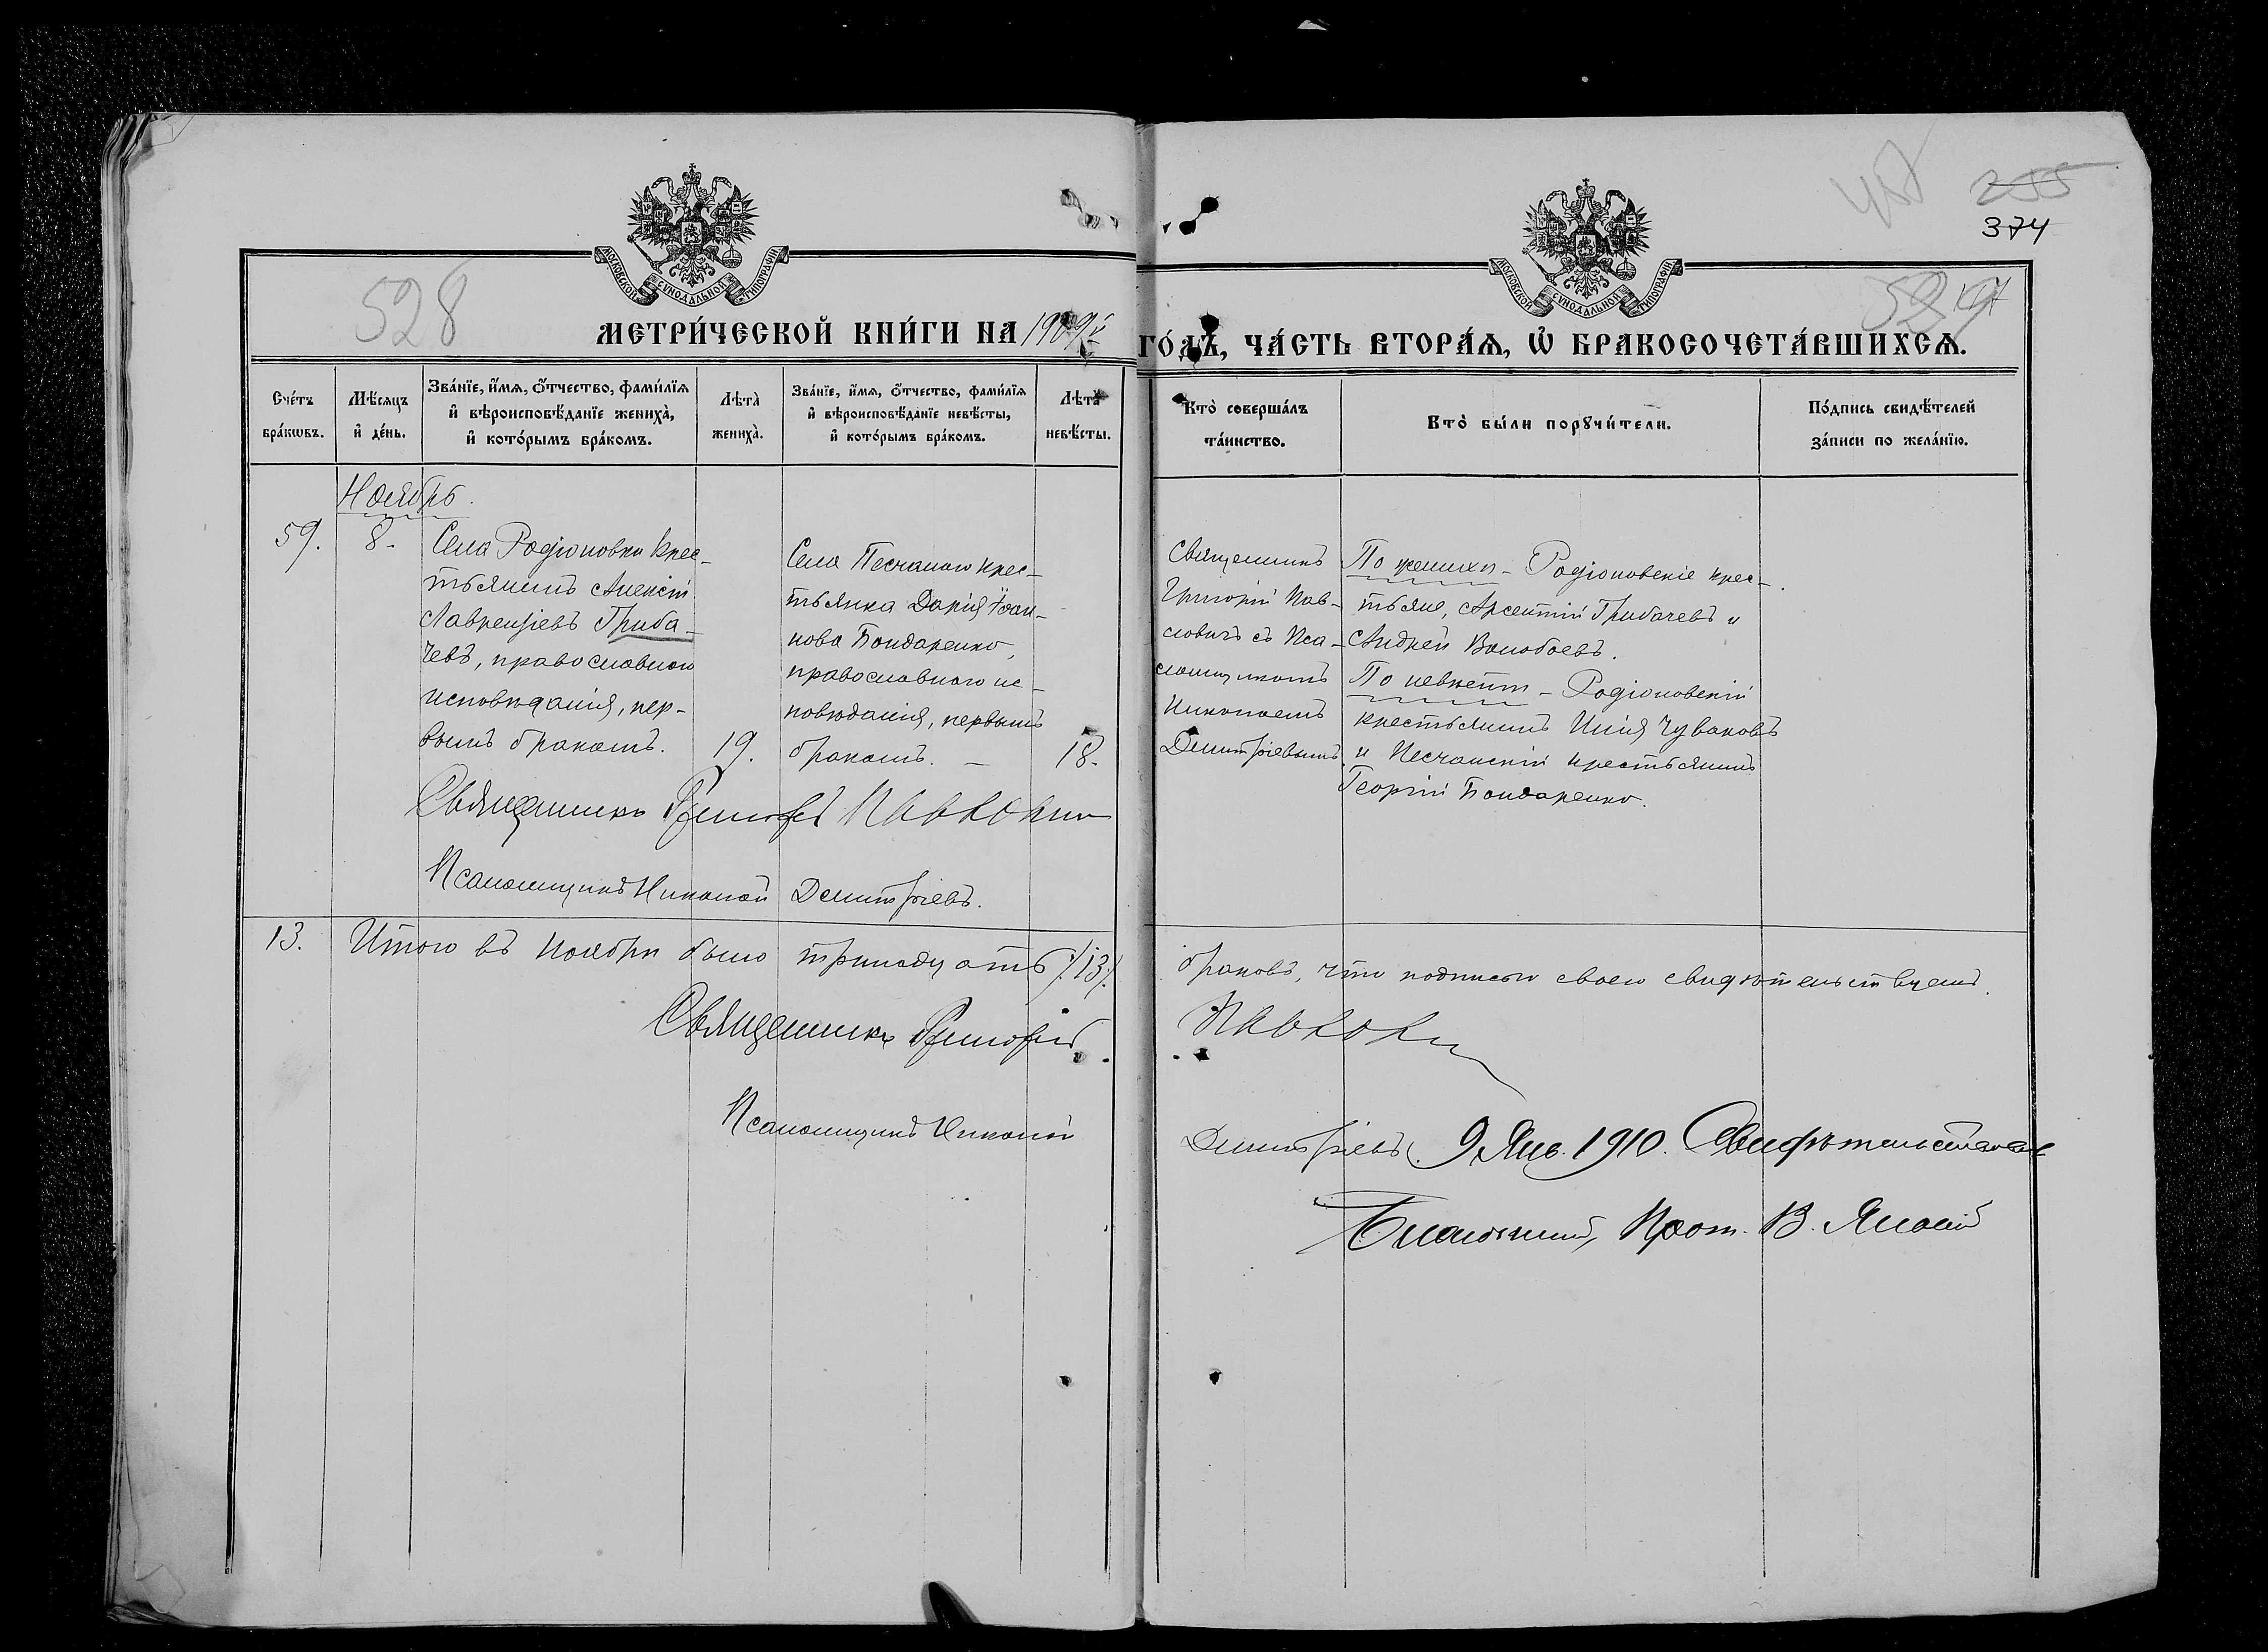 374
528
МОСКОВСКОЙ СѴНОДАЛЬНОЙ ТИПОГРАФІИ
МОСКОВСКОЙ СѴНОДАЛЬНОЙ ТИПОГРАФІИ
МЕТРИ́ЧЕСКОЙ КНИ́ГИ НА 1909й
ГО́ДЪ, ЧА́СТЬ ВТОРА́Ѧ, Ѡ҆ БРАКОСОЧЕТА́ВШИХСѦ.
Сче́тъ бра́кѡвъ.
Мѣ́сѧцъ и҆ де́нь.
Зва́нїе, и҆́мѧ, ѻ҆́тчество, фами́лїѧ
и҆ вѣроисповѣ́данїе жениха̀,
и҆ кото́рымъ бра́комъ.
Лѣта̀ жениха̀.
Зва́нїе, и҆́мѧ, ѻ҆́тчество, фами́лїѧ
и҆ вѣроисповѣ́данїе невѣ́сты,
и҆ кото́рымъ бра́комъ.
Лѣта̀ невѣ́сты.
Кто̀ соверша́лъ
та́инство.
Кто̀ бы́ли порꙋчи́тели.
По́дпись свидѣ́телей
за́писи по жела́нїю.
Ноябрь.
59.
8.
Села Родіоновки крес-
тьянинъ Алексѣй
Лаврентіевъ Гриба-
чевъ, православнаго
исповѣданія, пер-
вымъ бракомъ.
19.
Села Песчаного крес-
тьянка Дарія Іоан-
нова Бондаренко,
православнаго ис-
повѣданія, первымъ
бракомъ. —
18.
Священникъ
Григорій Пав-
ловичъ съ Пса-
ломщикомъ
Николаемъ
Димитріевымъ.
По женихѣ - Родіоновскіе крес-
тьяне, Арсентій Грибачевъ и
Андрей Волобоевъ.
По невѣстѣ - Родіоновскій
крестьянинъ Илія Чуваковъ
и Песчанскій крестьянинъ
Георгій Бондаренко.
Священникъ Григорій
Псаломщикъ Николай Димитріевъ.
13.
Итого въ Ноябрѣ было тринадцать /:13:/
браковъ, что подписью своею свидѣтельствуемъ.
Священникъ Григорій
Псаломщикъ Николай
Димитріевъ. 9 Янв. 1910. Свидѣтельствовалъ
Благочинный, Прот. В.